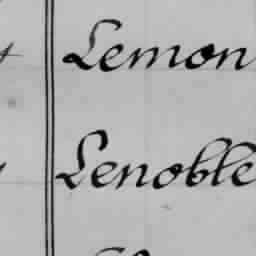 Lemon
Lenoble